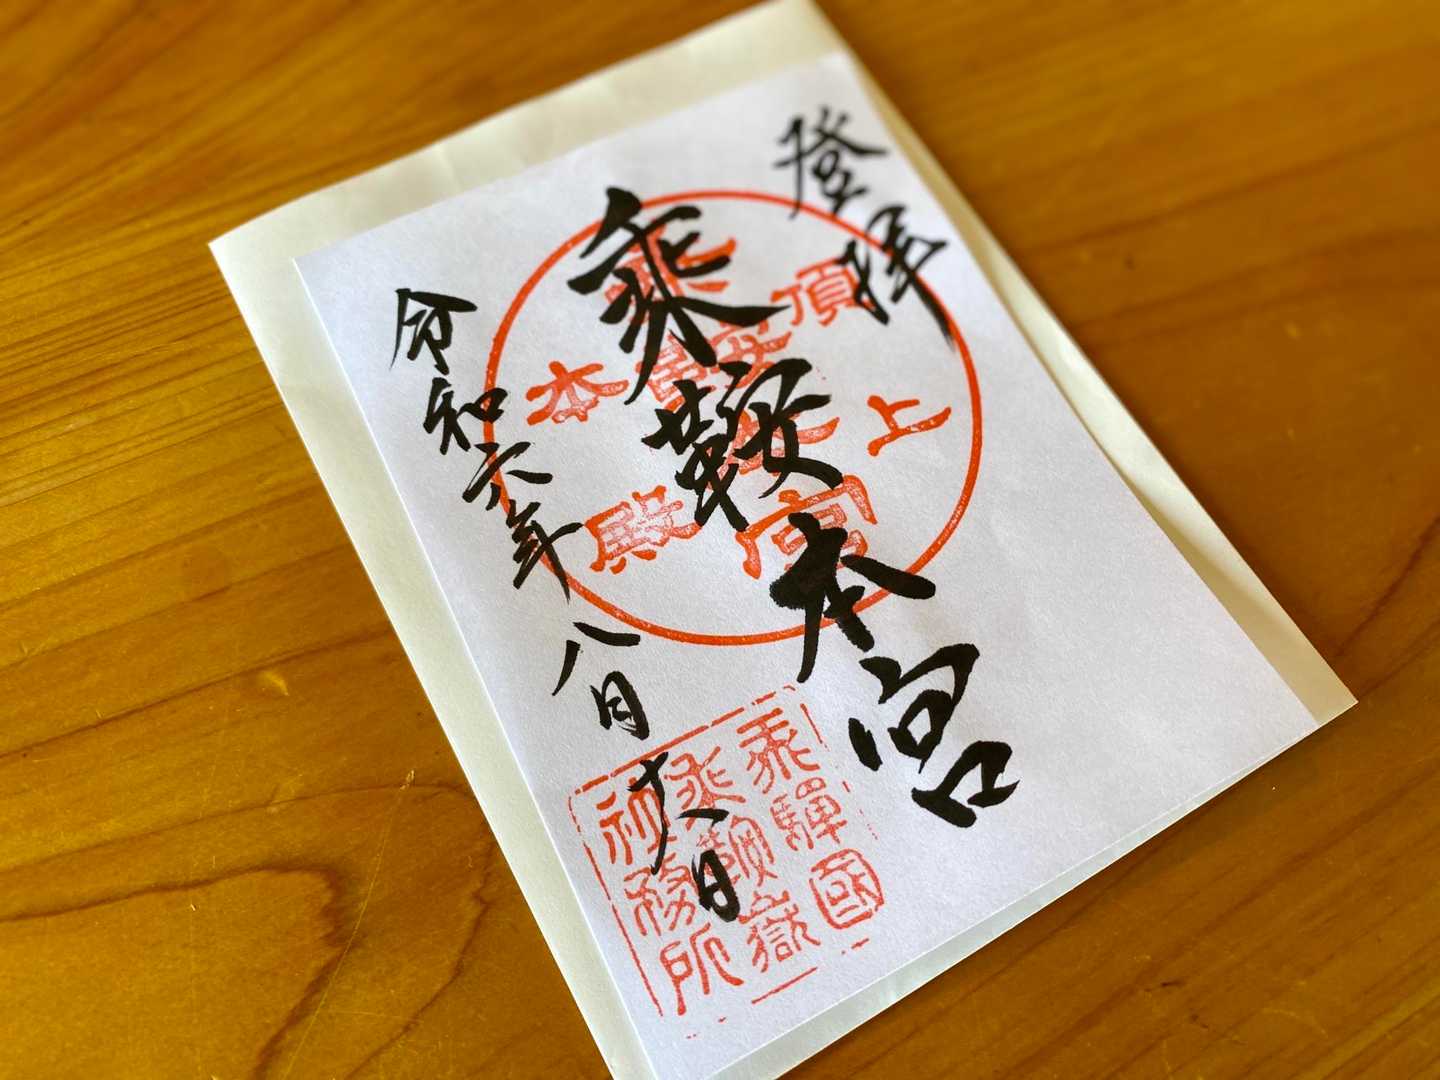 登拝
乗鞍本宮
令和六年八月十八日
頂上
乗鞍本宮
本殿
飛騨國
乗鞍嶽
社務所